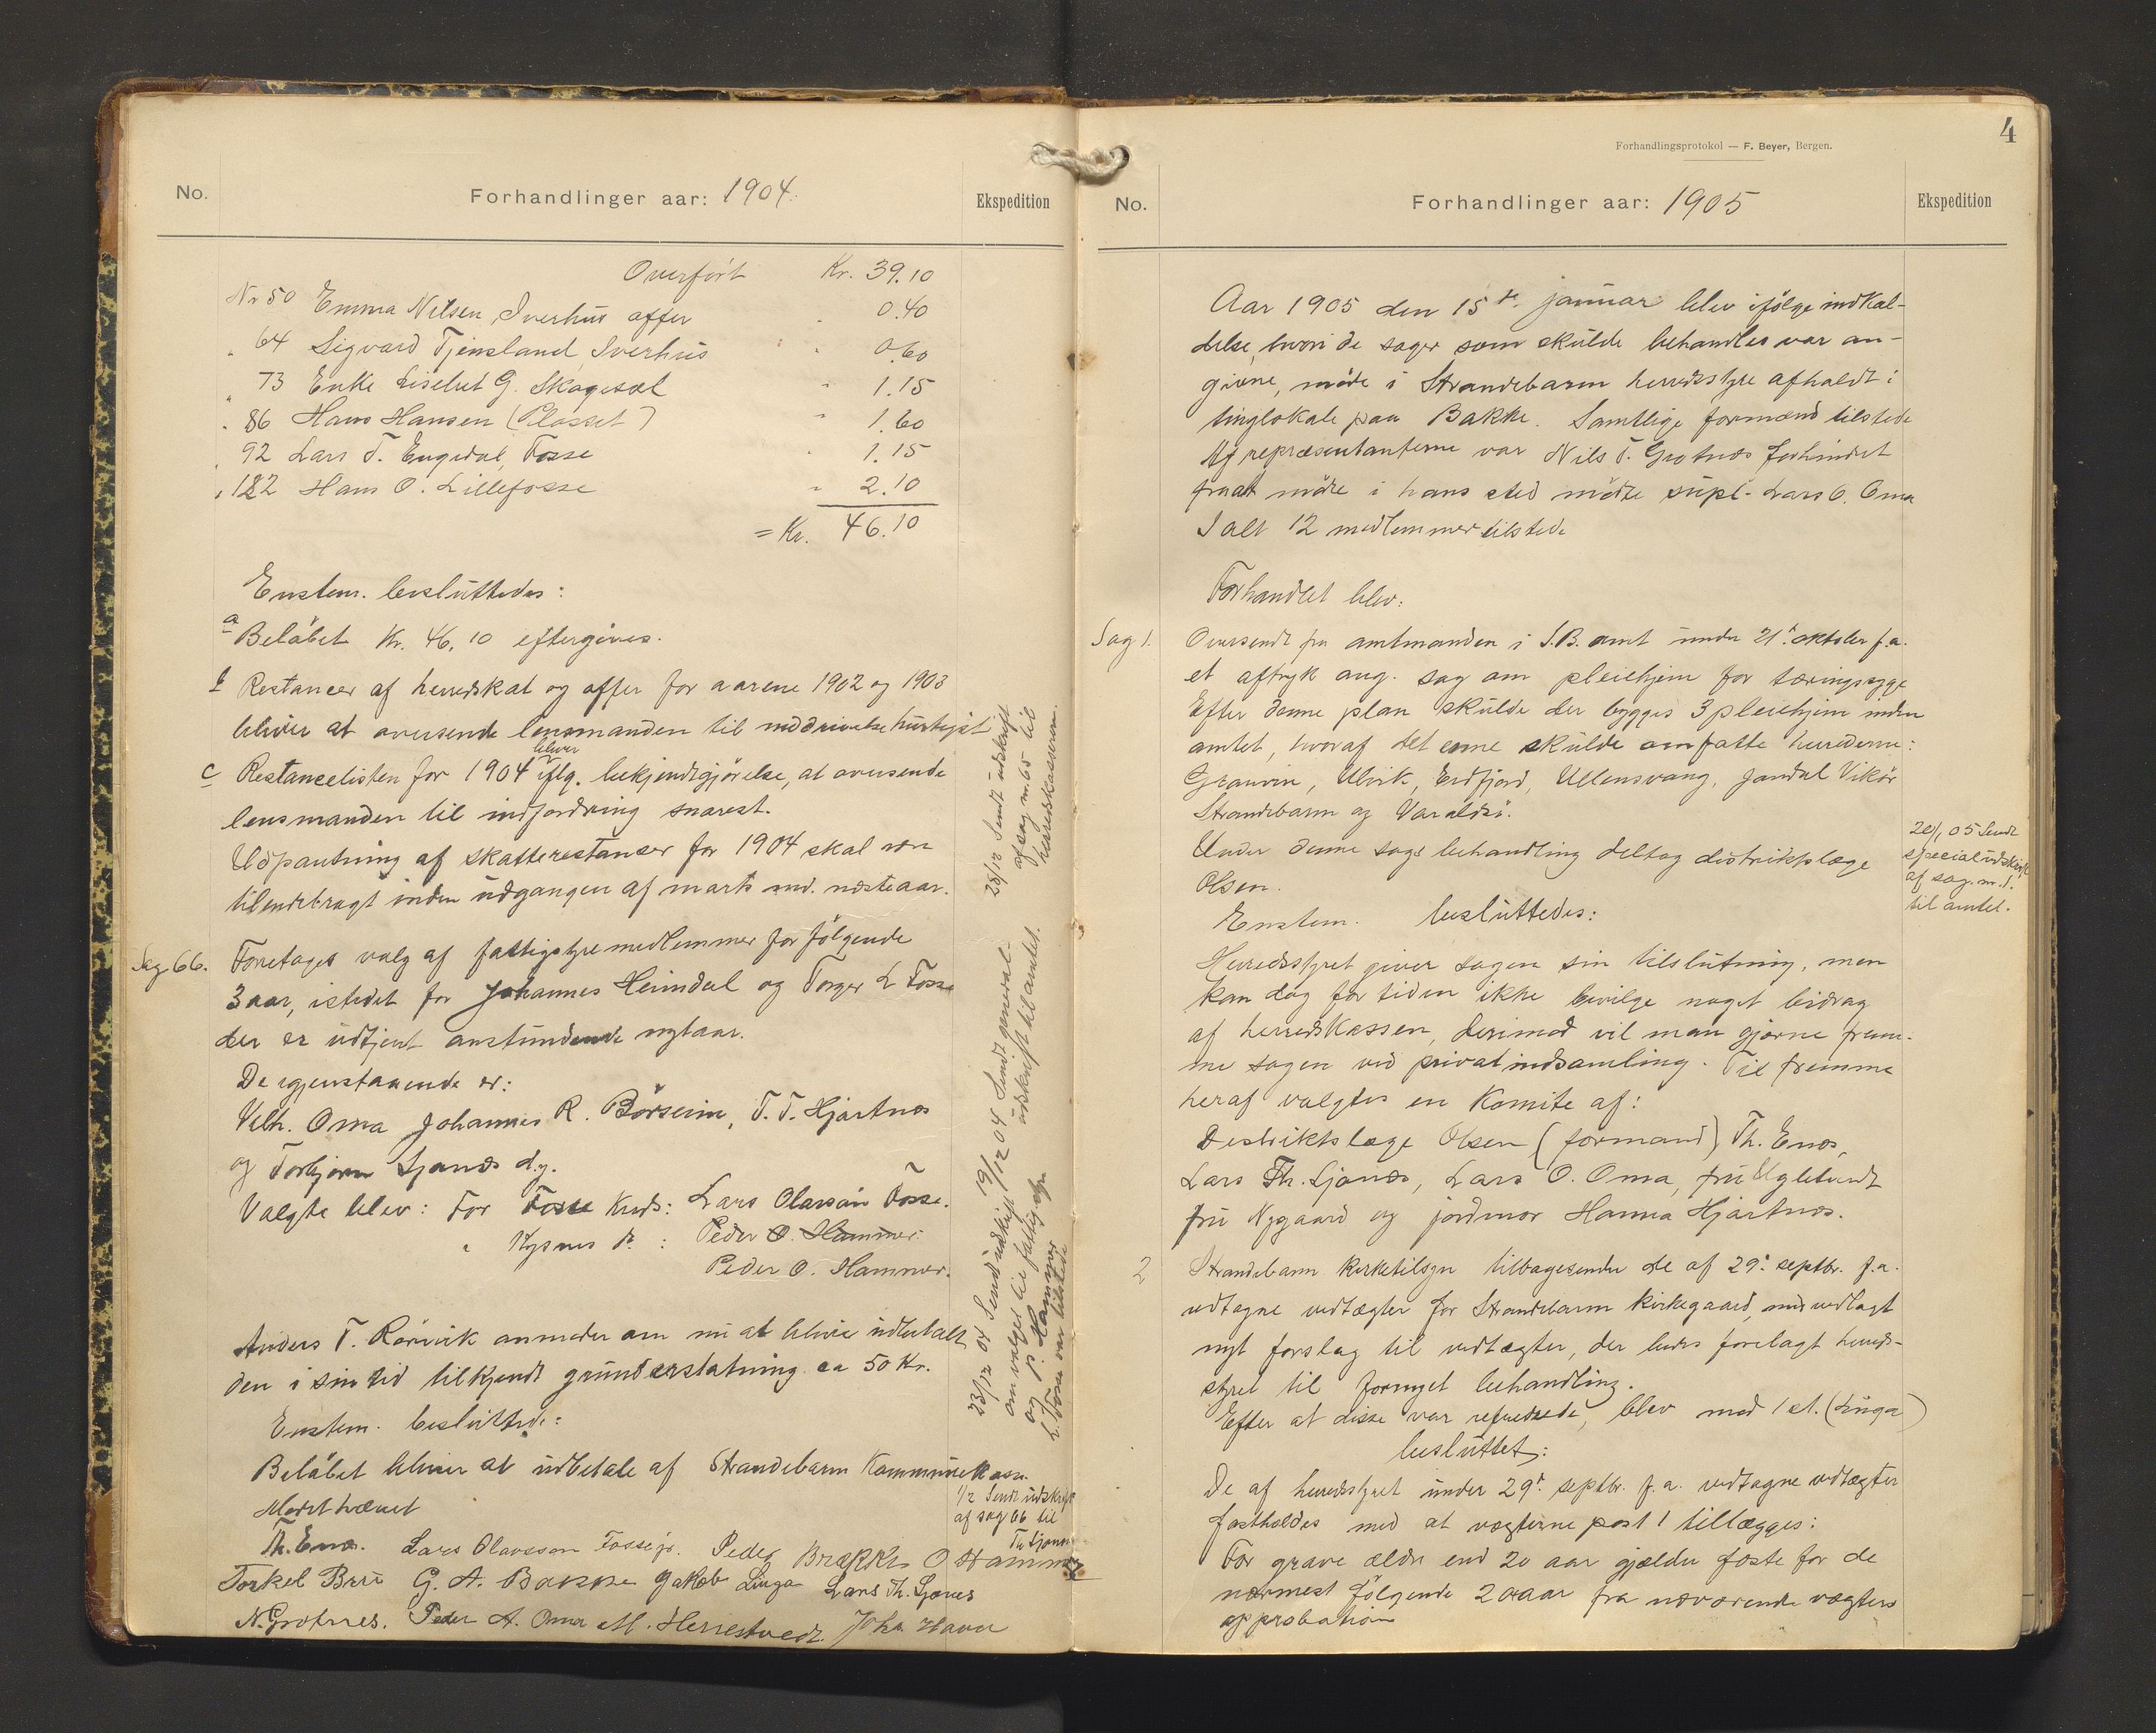 No.
Forhandlinger aar: 1904.
Ekspedition
Overført Kr. 39.10
Nr 50 Emma Nilsen, Iverhus offer " 0.40
" 64 Sigvard Tjensland Iverhus " 0.60
" 73 Enke Liselut G. Skogesæl " 1.15
" 86 Hans Hansen (Plasset) " 1.60
" 92 Lars T. Engedal, Fosse " 1.15
" 122 Hans O. Lillefosse " 2.10
= Kr. 46.10
Enstem. besluttedes:
a Beløbet Kr. 46,10 eftergives.
b Restancer af herredskat og offer for aarene 1902 og 1903
bliver at oversende lensmanden til inddrivelse hurtigst
c Restancelisten for 1904 bliver iflg. bekjendtgjørelse, at oversende
lensmanden til indfordring snarest.
Udpantning af skatterestanser for 1904 skal være
tilendebragt inden udgangen af marts md. næsteaar.
Sag 66. Foretages valg af fattigstyremedlemmer for følgende
3 aar, istedet for Johannes Heimdal og Torger L Fosse
der er udtjent anstundende nytaar.
De igjenstaaende er:
Vilh. Oma Johannes R. Børsem, T. T. Hjartnæs
og Torbjørn Ljonæs d.y.
Valgte blev: For Fosse Kreds: Lars Olavson Fosse.
" Kysnes K. : Peder O. Hammer
Peder O. Hammer.
Anders T. Rørvik anmoder om nu at blive udbetalt
den i sin tid tilkjendt grunderstatning ca 50 Kr.
Enstem. besluttedes:
Beløbet bliver at udbetale af Strandebarm Kommunekasse.
Mødet hævet
Th. Enæs. Lars Olavsson Fosse jr. Peder Brække O Hammer
Torkel Bru G. A. Bakke Jakob Linga Lars Th. Ljones
N. Grotnes. Peder A. Oma M. Herrestvedt. Johs Haver
28/12 Sendt udskrift
af sag nr. 65 til
herredskasseren.
19/12 04 Sendt general-
udskrift til amtet.
23/12 04 Sendt udskrift
om valget til fattigstyre
og P. Hammer
L. Fosse var tilstede
1/2 Sendt udskrift
af sag 66 til
Th Ljones
Forhandlingsprotokol — F. Beyer, Bergen.
4
No.
Forhandlinger aar: 1905
Ekspedition
Aar 1905 den 15de januar blev ifølge indkal-
delse, hvori de sager som skulde behandles var an-
givne, møde i Strandebarm herredsstyre afholdt i
tinglokale paa Bakke. Samtlige formænd tilstede
Af repræsentanterne var Nils T. Grotnæs forhindret
fra at møde i hans sted mødte supl. Lars O. Oma
I alt 12 medlemmer tilstede
Forhandlet blev:
Sag 1. Oversendt fra amtmanden i S.B. amt under 21de oktober f.a.
et aftryk ang. sag om pleiehjem for tæringssyge
Efter denne plan skulde der bygges 3 pleiehjem inden
amtet, hvoraf det enne skulde omfatte herrederne:
Granvin, Ulvik, Eidfjord, Ullensvang, Jondal Vikør
Strandebarm og Varaldsø.
Under denne sags behandling deltog distriktslæge
Olsen.
Enstem. besluttedes:
Herredsstyret giver sagen sin tilslutning, men
kan dog for tiden ikke bevilge noget bidrag
af herredskassen, derimod vil man gjerne frem-
me sagen ved privat indsamling. Til fremme
heraf valgtes en Komite af:
Distriktslæge Olsen (formand) Th. Enæs,
Lars Th. Ljonæs, Lars O. Oma, fru Uglehult
fru Nygaard og jordmor Hanna Hjartnæs.
20/1 05 Sendt
specialudskrift
af sag nr. 1.
til amtet.
2 Strandebarm kirketilsyn tilbagesender de af 29de septbr. f.a.
vedtagne vedtægter for Strandebarm kirkegaard, med vedlagt
nyt forslag til vedtægter, der bedes forelagt herreds-
styret til fornyet behandling.
Efter at disse var refererede, blev mod 1 st. (Linga)
besluttet:
De af herredsstyret under 29de septbr. f.a. vedtagne vedtægter
fastholdes med at vegterne post 1 tillægges:
For grave ældre end 20 aar gjælder feste for de
nærmest følgende 20 aar fra nærværende vægters
approbation